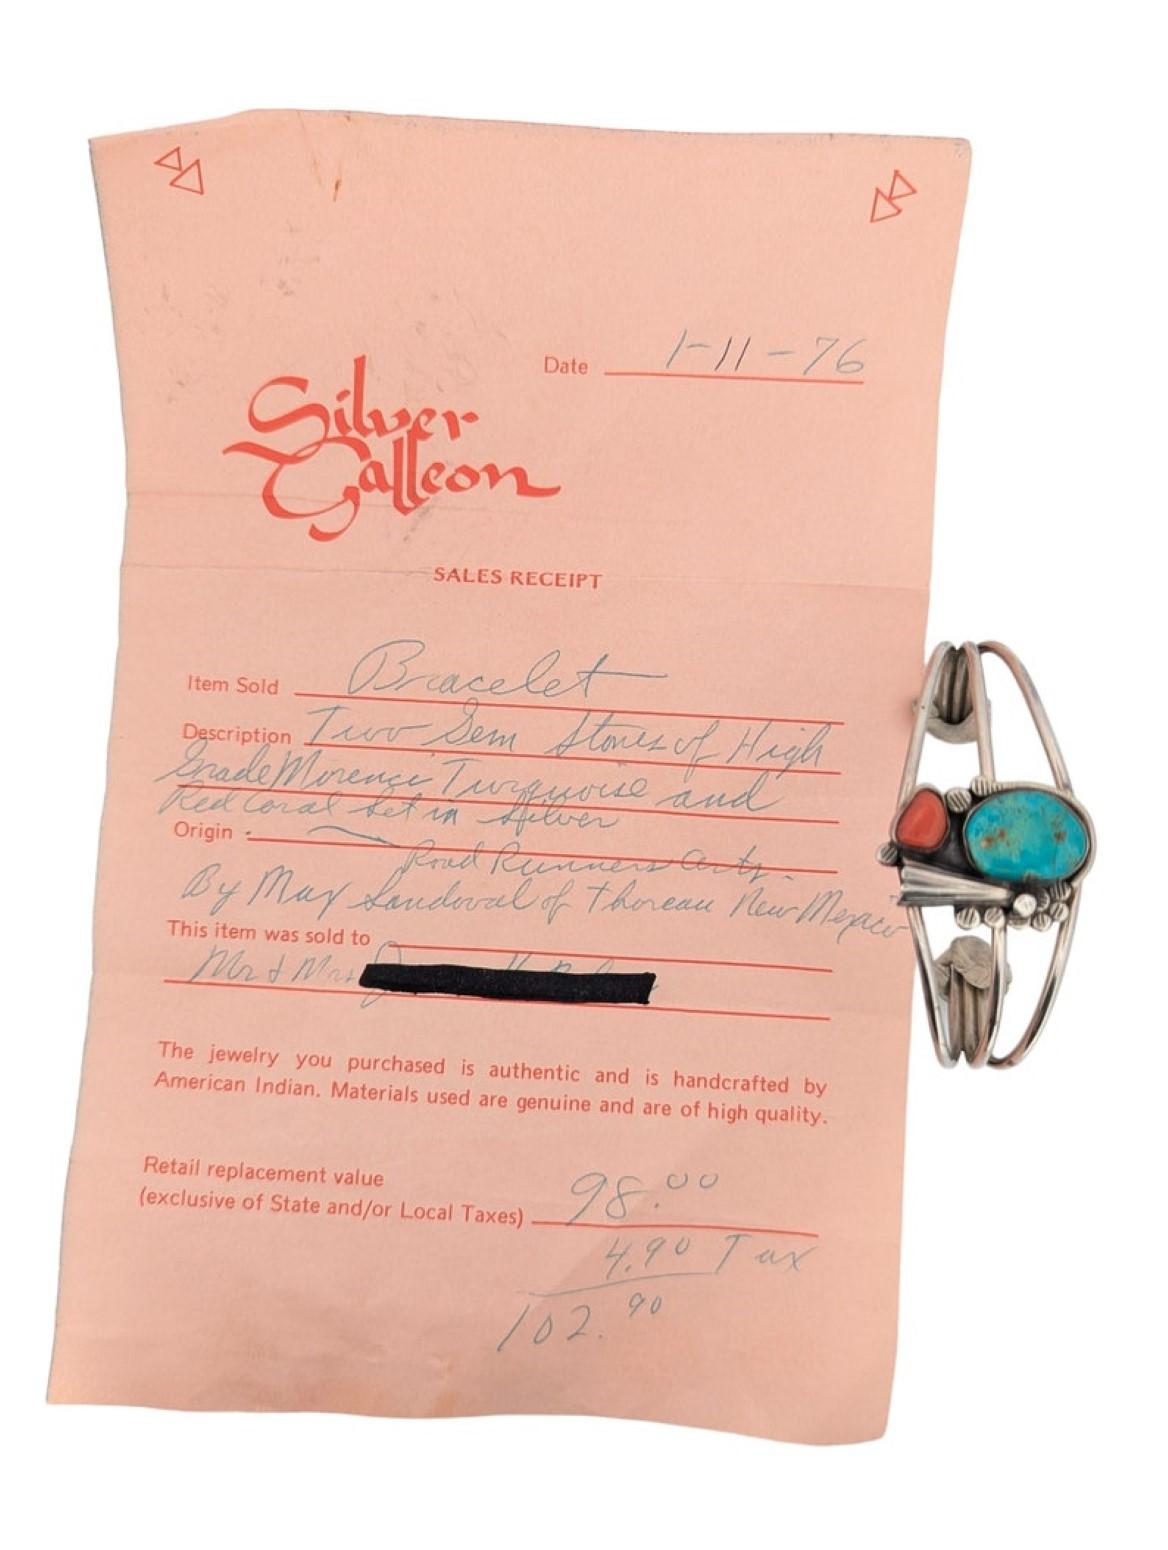 Date 1-11-76
Silver
Galleon
SALES RECEIPT
Item Sold Bracelet
Description Two Gem Stones of High
Grade Morenci Turquoise and
Red Coral Set in Silver
Origin
Road Runners Arts.
By Max Sandoval of Thoreau New Mexico
This item was sold to
Mr & Mrs
The jewelry you purchased is authentic and is handcrafted by
American Indian. Materials used are genuine and are of high quality.
Retail replacement value
(exclusive of State and/or Local Taxes) 98.00
4.90 Tax
102.90